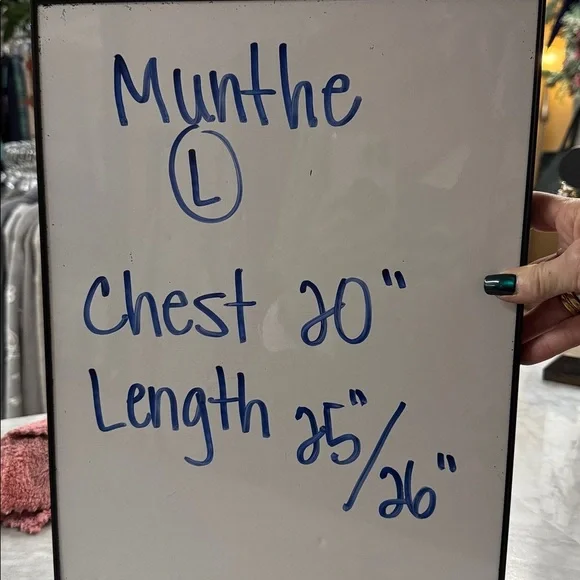 Munthe
L
Chest 20"
Length 25"/26"